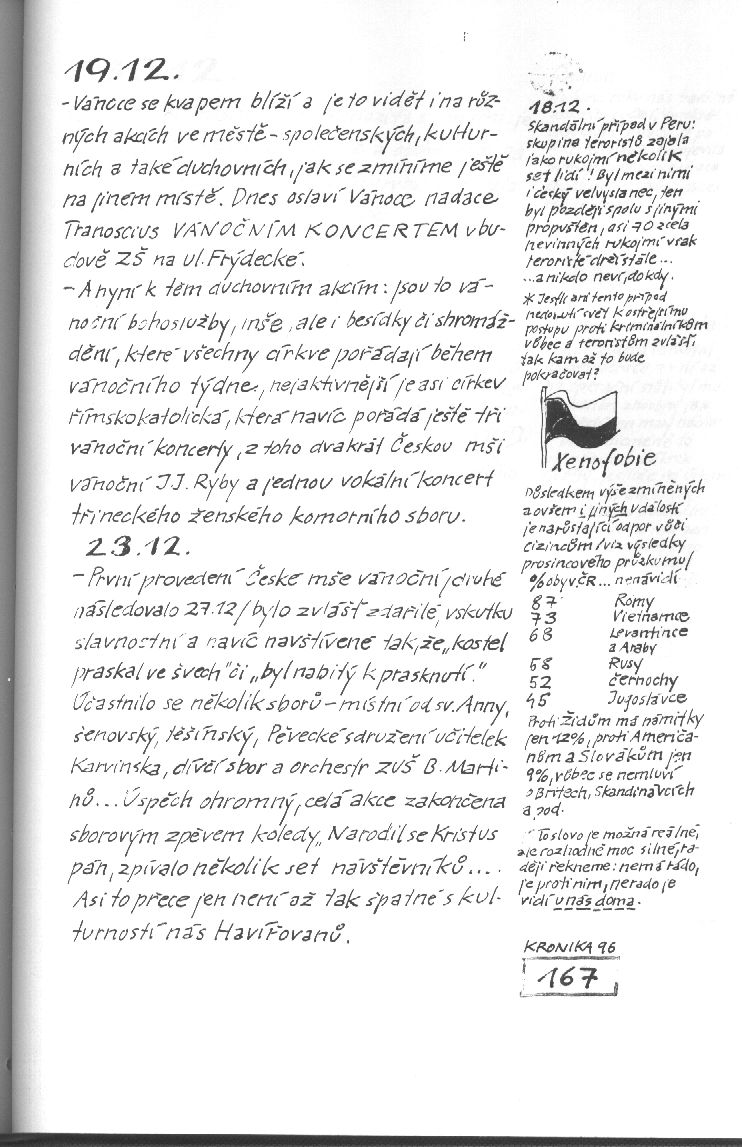 19.12.
- Vánoce se kvapem blíží a je to vidět i na růz-
ných akcích ve městě - společenských, kultur-
ních a také duchovních, jak se zmíníme ještě
na jiném místě. Dnes oslaví Vánoce nadace
Tranoscius VÁNOČNÍM KONCERTEM v bu-
dově ZŠ na ul. Frýdecké.
- A nyní k těm duchovním akcím: jsou to vá-
noční bohoslužby, mše, ale i besídky či shromáž-
dění, které všechny církve pořádají během
vánočního týdne, nejaktivnější je asi církev
římskokatolická, která navíc pořádá ještě tři
vánoční koncerty, z toho dvakrát Českou mši
vánoční J.J. Ryby a jednou vokální koncert
třineckého ženského komorního sboru.
23.12.
- První provedení České mše vánoční / druhé
následovalo 27.12 / bylo zvlášť zdařilé, vskutku
slavnostní a navíc navštívené tak, že „kostel
praskal ve švech" či „byl nabitý k prasknutí."
Účastnilo se několik sborů - místní od sv. Anny,
šenovský, těšínský, Pěvecké sdružení učitelek
Karvinska, dívčí sbor a orchestr ZUŠ B. Marti-
nů... Úspěch ohromný, celá akce zakončena
sborovým zpěvem koledy „Narodil se Kristus
pán, zpívalo několik set návštěvníků....
Asi to přece jen není až tak špatné s kul-
turností nás Havířovanů.
18.12.
Skandální případ v Peru:
skupina teroristů zajala
jako rukojmí několik
set lidí! Byl mezi nimi
i český velvyslanec, ten
byl později spolu s jinými
propuštěn, asi 70 zcela
nevinných rukojmí však
teroristé drží stále...
...a nikdo neví, dokdy.
* Jestli ani tento případ
nedonutí svět k ostřejšímu
postupu proti kriminálníkům
vůbec a teroristům zvláště
tak kam až to bude
pokračovat?
Xenofobie
Důsledkem výše zmíněných
a ovšem i jiných událostí
je narůstající odpor vůči
cizincům / viz výsledky
prosincového průzkumu /
% obyv. ČR ... nenávidí
87 Romy
73 Vietnamce
68 Levantince
a Araby
58 Rusy
52 černochy
45 Jugoslávce
Proti Židům má námitky
jen 12%, proti Američa-
nům a Slovákům jen
9%, vůbec se nemluví
o Britech, Skandinávcích
a pod.
Toslovo je možná reálné,
ale rozhodně moc silné, ra-
ději řekneme: nemá rádo,
je proti nim, nerado je
vidí u nás doma.
KRONIKA 96
167